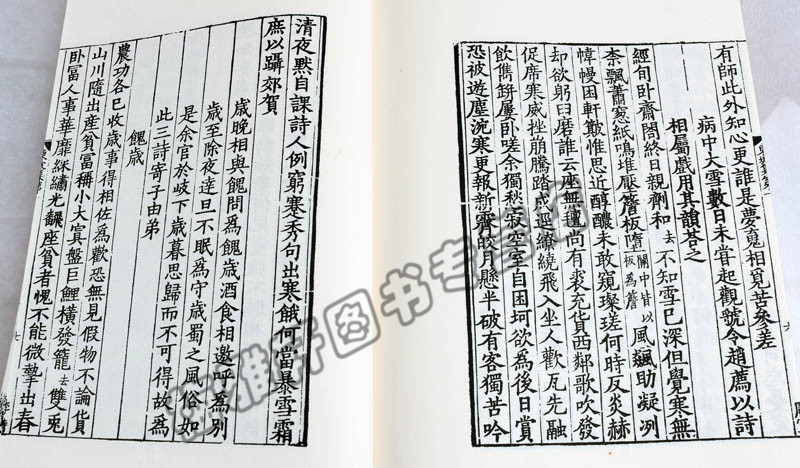 有師此外知心更誰是夢䰟相覓苦參差
病中大雪數日未甞起觀虢令趙薦以詩
相屬戲用其韻荅之
經旬卧齋閤終日親劑和去不知雪已深但覺寒無
柰飄蕭窓紙鳴堆壓簷板墮關中皆以板為簷風飈助凝冽
幃幔困軒簸惟思近醇醲未敢窺璨瑳何時反炎赫
却欲躬臼磨誰云座無氊尚有裘充貨西鄰歌吹發
促席寒威挫崩騰踏成逕繚繞飛入坐人歡瓦先融
飲雋缾屢卧嗟余獨愁寂空室自困坷欲為後日賞
恐被遊塵涴寒更報新霽皎月懸半破有客獨苦吟
六
清夜黙自課詩人例窮蹇秀句出寒餓何當暴雪霜
庶以躡郊賀
歲晚相與餽問為餽歲酒食相邀呼為別
歲至除夜達旦不眠為守歲蜀之風俗如
是余官於岐下歲暮思歸而不可得故為
此三詩寄子由弟
餽歲
農功各已收歲事得相佐為歡恐無及假物不論貨
山川隨出產貧富稱小大寘盤巨鯉橫發籠去雙兔
卧富人事華靡綵繡光翻座貧者愧不能微摯出舂
七
雅轩图书专营店